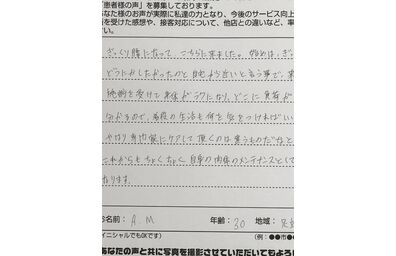 「患者様の声」を募集しております。
あなた様のお声が実際に私達の力となり、今後のサービス向上
を受けた感想や、接客対応について、他店との違いなど、率
ださい。
ぎっくり腰になって こちらに来ました。始めは、ぎっ
どうにかしたかったのと 自宅から近いと言う事で、
施術を受けて 身体がラクになり、どこに負荷が
分かるので、普段の生活も何を気をつければいい
やはり専門家にケアして頂くのは違うものだなと
これからもちょくちょく自身の肉体のメンテナンスとして
お名前: A.M 年齢: 30 地域: 足立
イニシャルでもOKです) (例:●●市●
あなたの声と共に写真を撮影させていただいてもよろし